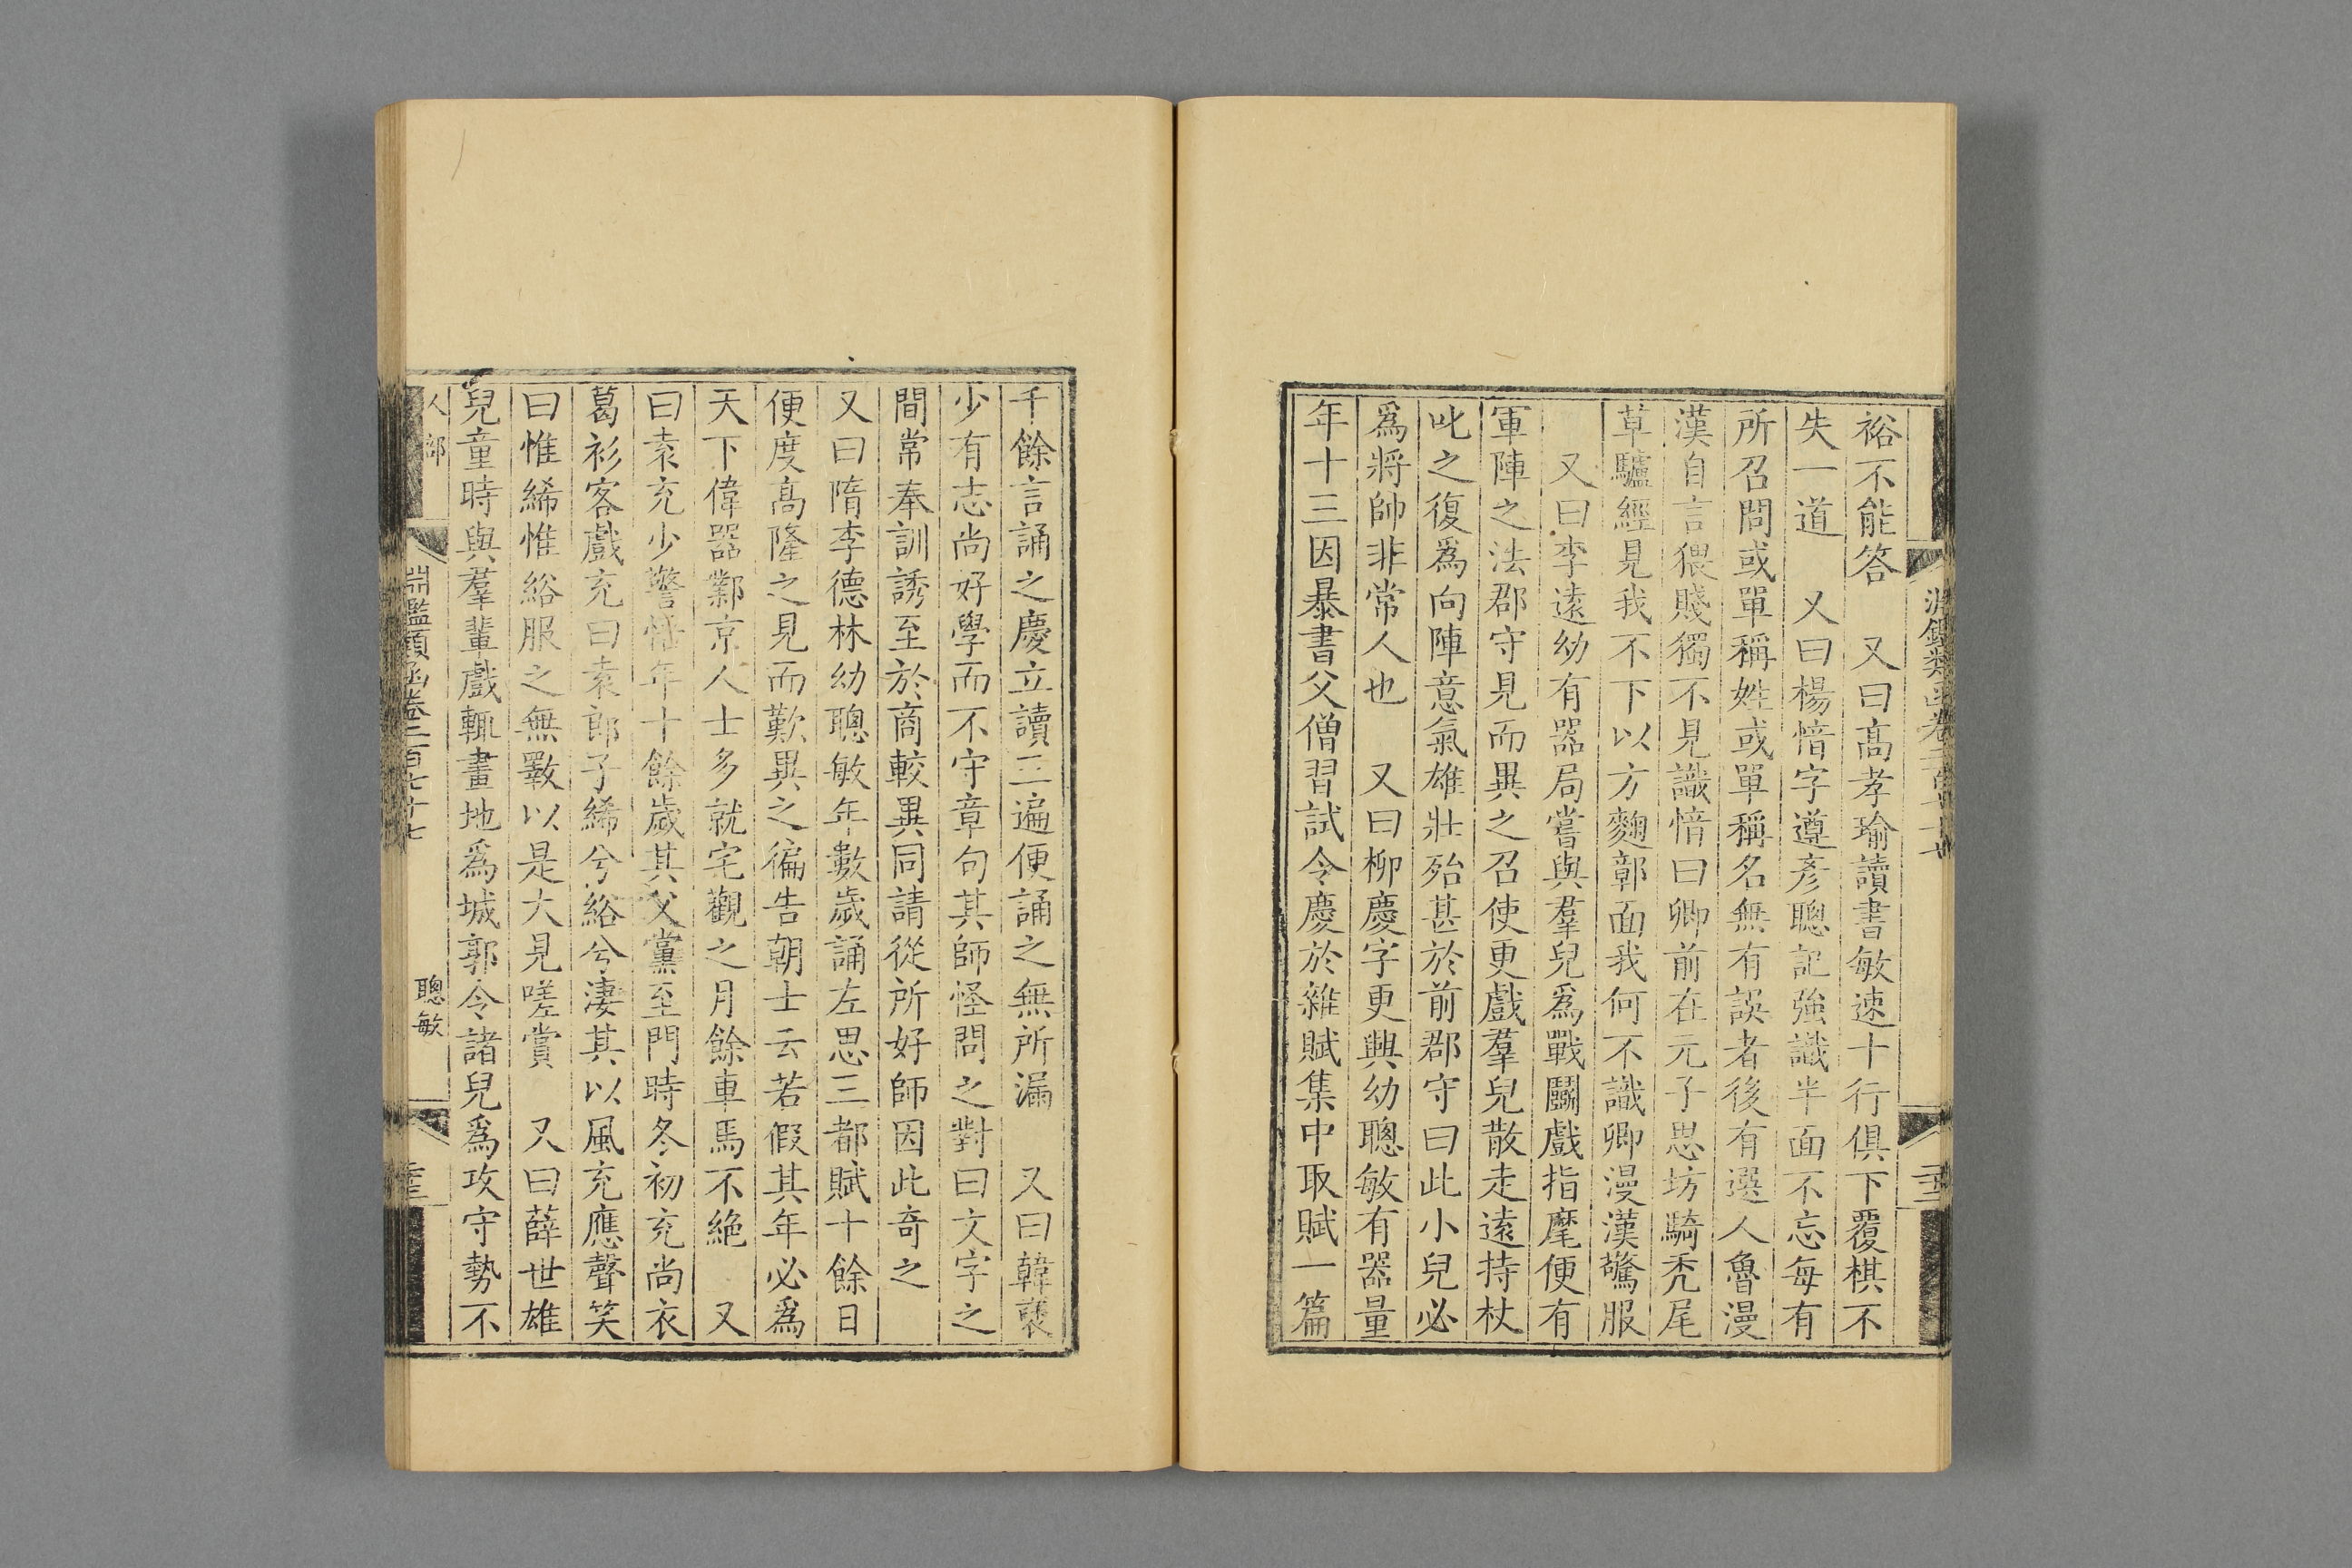 裕不能答　又曰高孝瑜讀書敏速十行俱下覆棋不
失一道　又曰楊愔字遵彥聰記強識半面不忘每有
所召問或單稱姓或單稱名無有誤者後有選人魯漫
漢自言猥賤獨不見識愔曰卿前在元子思坊騎禿尾
草驢經見我不下以方麴鄣面我何不識卿漫漢驚服
又曰李遠幼有器局嘗與羣兒爲戰鬬戲指麾便有
軍陣之法郡守見而異之召使更戲羣兒散走遠持杖
叱之復爲向陣意氣雄壯殆甚於前郡守曰此小兒必
爲將帥非常人也　又曰柳慶字更興幼聰敏有器量
年十三因暴書父僧習試令慶於雜賦集中取賦一篇
千餘言誦之慶立讀三遍便誦之無所漏　又曰韓褒
少有志尚好學而不守章句其師怪問之對曰文字之
間常奉訓誘至於商較異同請從所好師因此奇之
又曰隋李德林幼聰敏年數歲誦左思三都賦十餘日
便度高隆之見而歎異之徧告朝士云若假其年必爲
天下偉器鄴京人士多就宅觀之月餘車馬不絶　又
曰袁充少警悟年十餘歲其父黨至門時冬初充尚衣
葛衫客戲充曰袁郎子絺兮綌兮淒其以風充應聲笑
曰惟絺惟綌服之無斁以是大見嗟賞　又曰薛世雄
兒童時與羣輩戲輒畫地爲城郭令諸兒爲攻守勢不
人部　淵鑑類函卷二百七十七　聰敏